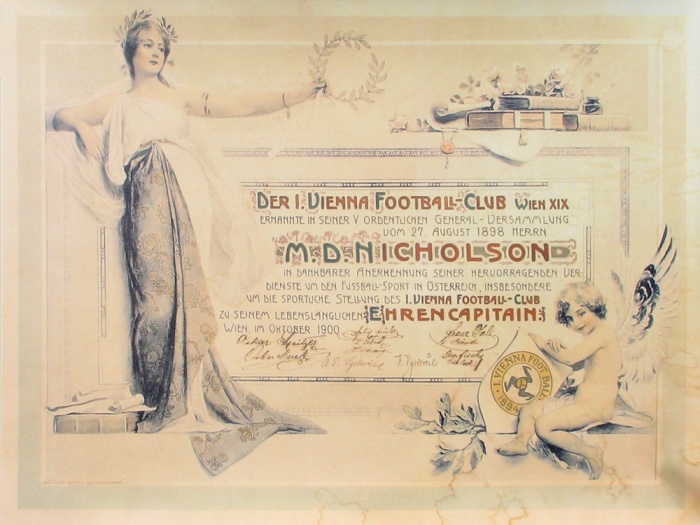 Der I. Vienna Football-Club Wien XIX
ernannte in seiner V. ordentlichen General-Versammlung
vom 27. August 1898 Herrn
M.D. Nicholson
in dankbarer Anerkennung seiner hervorragenden Ver-
dienste um den Fussball-Sport in Österreich, insbesondere
um die sportliche Stellung des I. Vienna Football-Club
zu seinem lebenslänglichen Ehrencapitain.
Wien im Oktober 1900
I. VIENNA FOOT BALL
1894